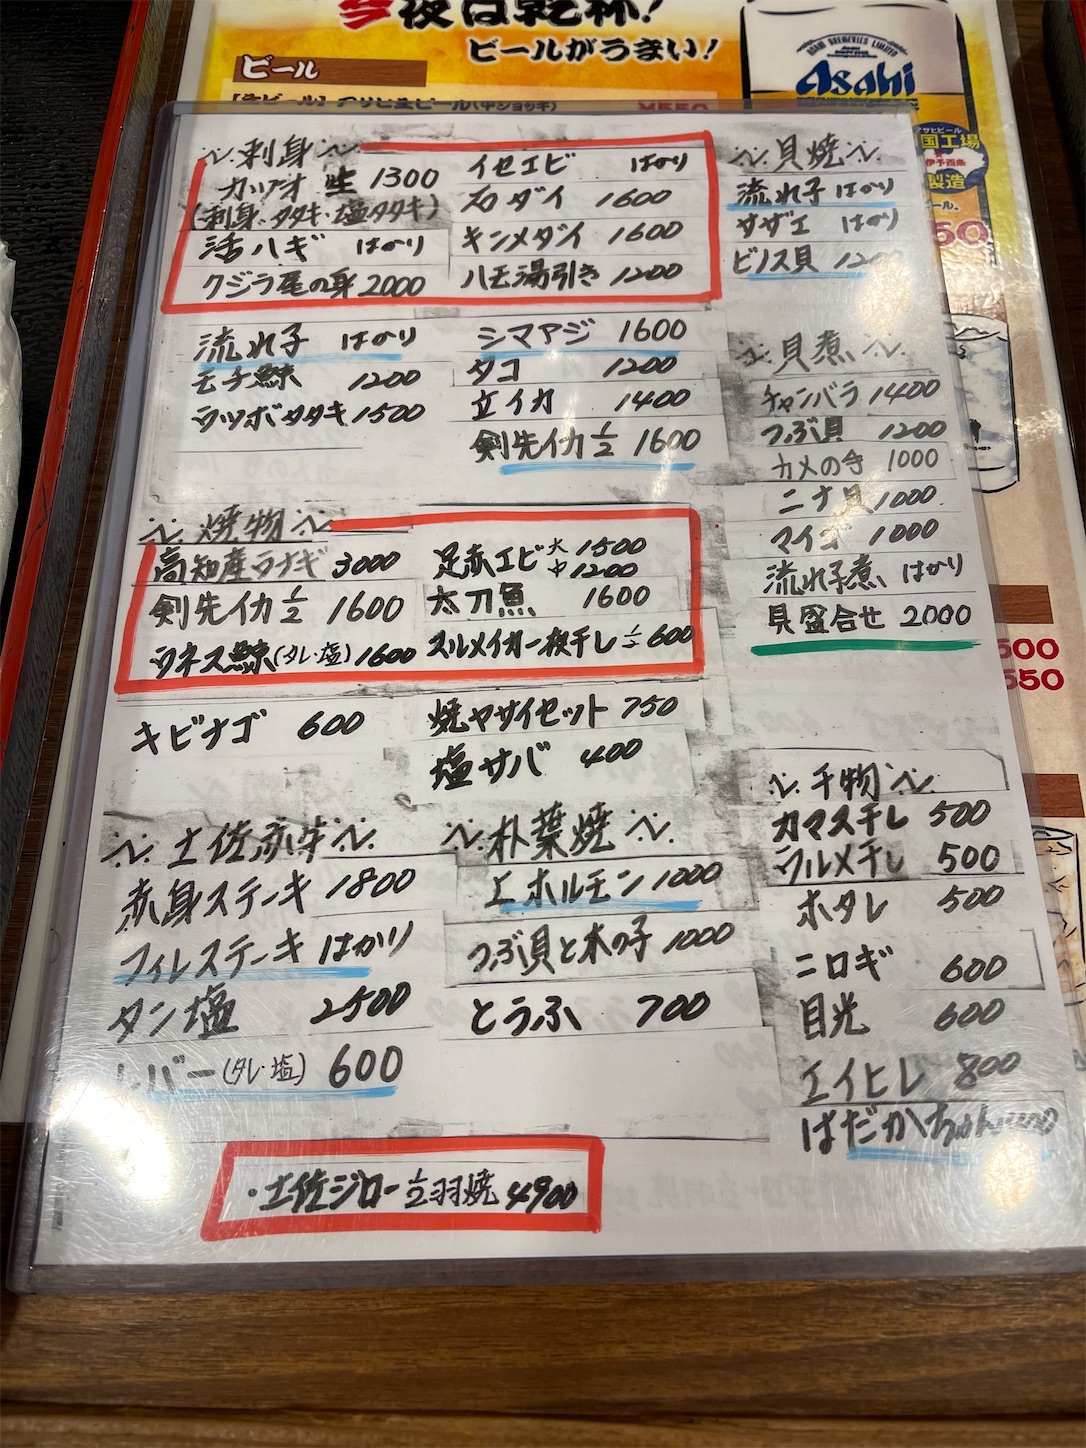 今夜は乾杯!
ビールがうまい!
ビール
【生ビール】アサヒ生ビール(中ジョッキ) ¥550
ASAHI BREWERIES LIMITED
Asahi
アサヒビール
国工場
伊予西条
製造
刺身
カツオ 生 1300
(刺身・タタキ・塩タタキ)
活ハギ はかり
クジラ尾の身 2000
イセエビ はかり
1600
キンメダイ 1600
ハモ湯引き 1200
流れ子 はかり
モチ鯨 1200
ウツボタタキ 1500
シマアジ 1600
タコ 1200
立イカ 1400
剣先イカ ½ 1600
焼物
高知産ウナギ 3000
剣先イカ ½ 1600
ウネス鯨(タレ・塩) 1600
足赤エビ 大 1500
中 1200
太刀魚 1600
スルメイカ一枚干し ½ 600
キビナゴ 600
焼ヤサイセット 750
塩サバ 400
土佐赤牛
赤身ステーキ 1800
フィレステーキ はかり
タン塩 2500
レバー(タレ・塩) 600
朴葉焼
ホルモン 1000
つぶ貝と木の子 1000
とうふ 700
・土佐ジロー ½羽焼 4900
貝焼
流れ子 はかり
サザエ はかり
ビノス貝 1200
貝煮
チャンバラ 1400
つぶ貝 1200
カメの手 1000
ニナ貝 1000
マイゴ 1000
流れ子煮 はかり
貝盛合せ 2000
干物
カマス干し 500
ウルメ干し 500
ホタレ 500
ニロギ 600
目光 600
エイヒレ 800
はだかちゃん
500
550